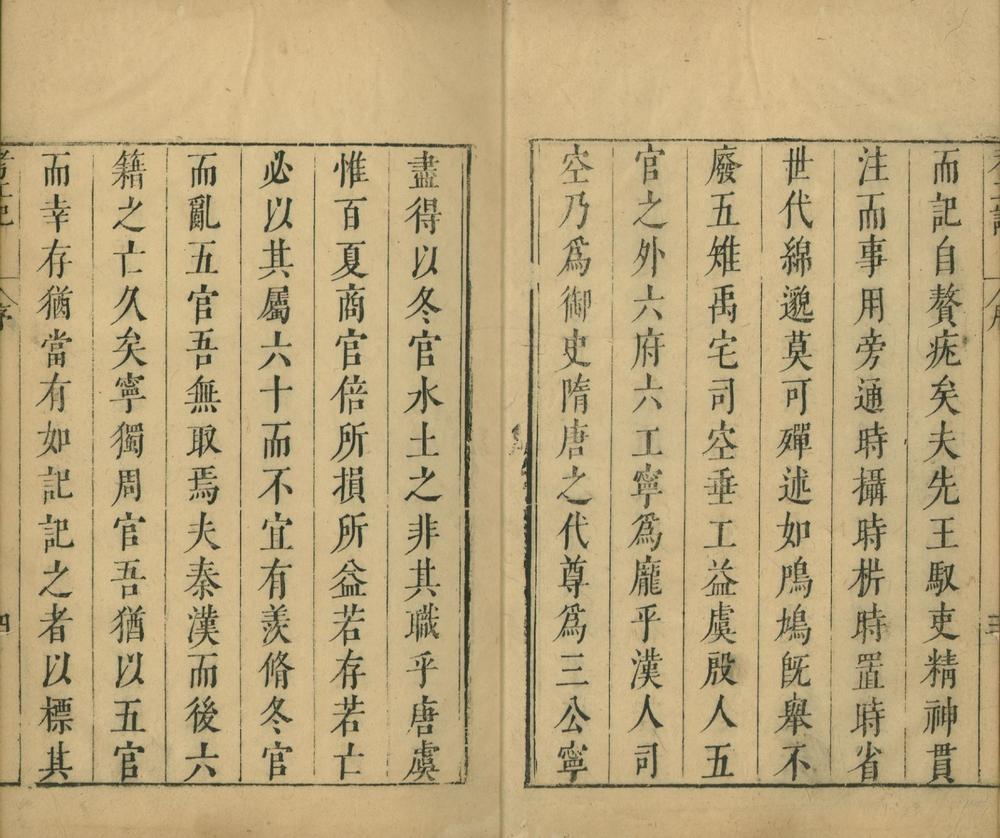 而記自贅疣矣夫先王馭吏精神貫
注而事用旁通時攝時枿時置時省
世代綿邈莫可殫述如鳲鳩旣舉不
廢五雉禹宅司空垂工益虞殷人五
官之外六府六工寧爲龎乎漢人司
空乃爲御史隋唐之代尊爲三公寧
盡得以冬官水土之非其職乎唐虞
惟百夏商官倍所損所益若存若亡
必以其屬六十而不宜有羨脩冬官
而亂五官吾無取焉夫秦漢而後六
籍之亡久矣寧獨周官吾猶以五官
而幸存猶當有如記記之者以標其
考工記 序 四